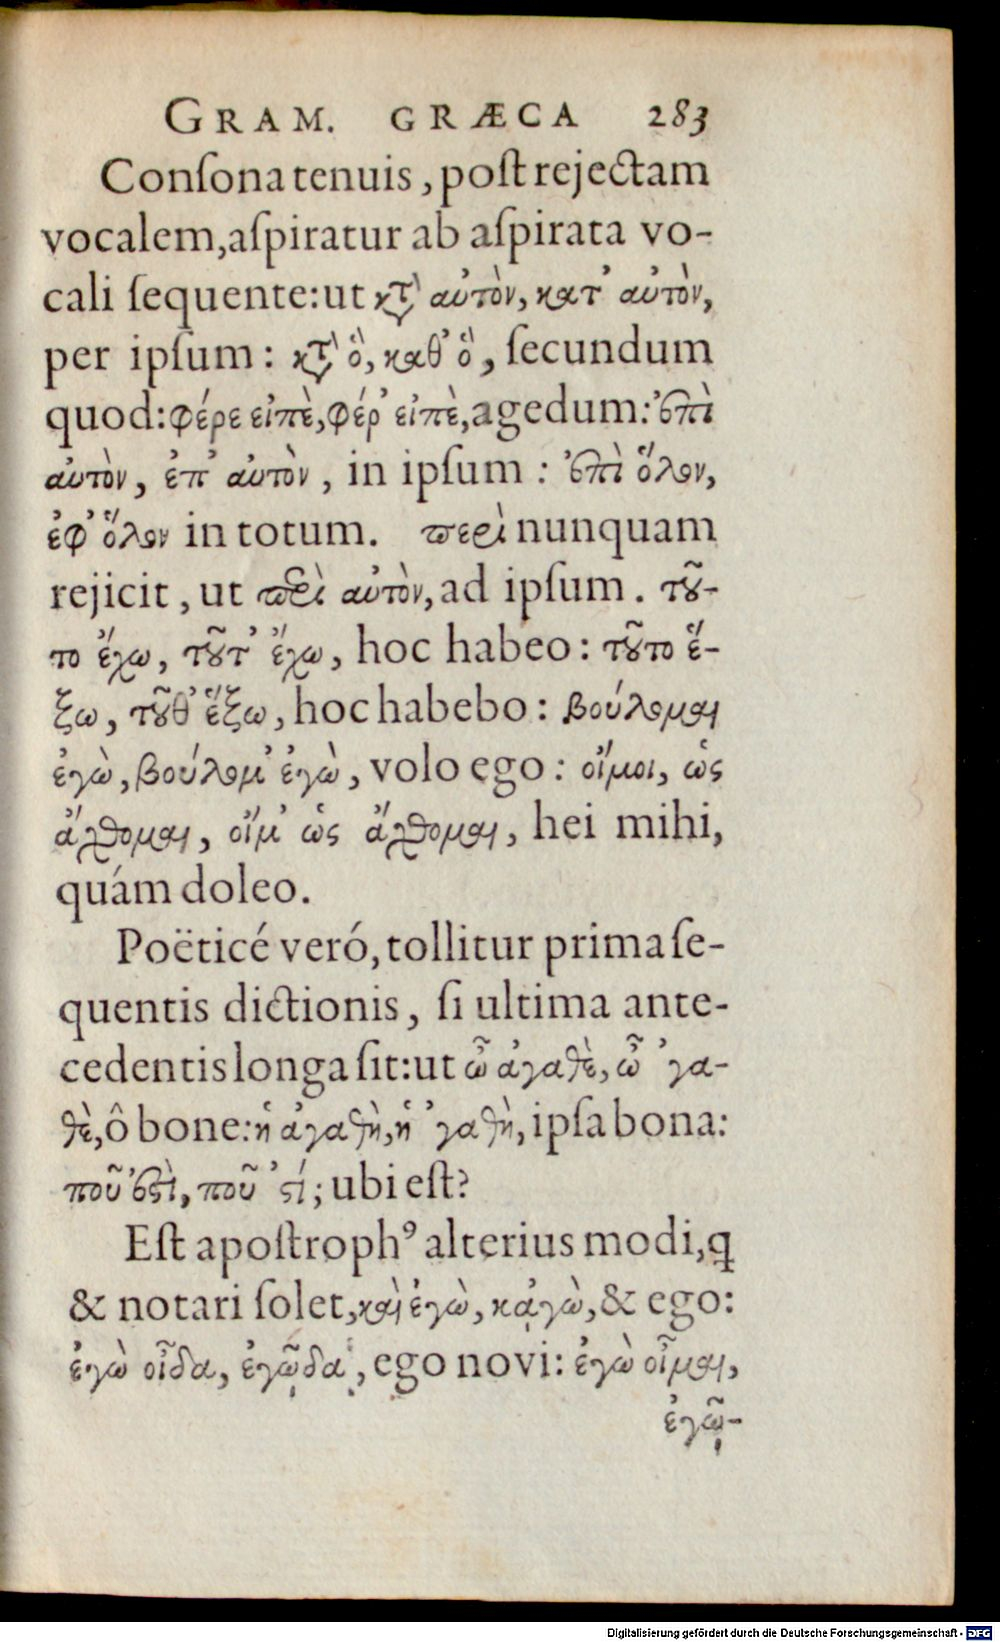 GRAM. GRÆCA 283
Conſona tenuis, poſt rejectam
vocalem, aſpiratur ab aſpirata vo-
cali ſequente: ut κτ̀ αὐτὸν, κατ' αὐτὸν,
per ipſum: κτ̀ ὃ, καθ' ὃ, ſecundum
quod: φέρε εἰπὲ, φέρ' εἰπὲ, agedum: ἐπὶ
αὐτὸν, ἐπ' αὐτὸν, in ipſum: ἐπὶ ὅλον,
ἐφ' ὅλον in totum. περὶ nunquam
rejicit, ut περὶ αὐτὸν, ad ipſum. τοῦ-
το ἔχω, τοῦτ' ἔχω, hoc habeo: τοῦτο ἕ-
ξω, τοῦθ' ἕξω, hoc habebo: βούλομαι
ἐγὼ, βούλομ' ἐγὼ, volo ego: οἴμοι, ὡς
ἄχθομαι, οἴμ' ὡς ἄχθομαι, hei mihi,
quám doleo.
Poëticé veró, tollitur prima ſe-
quentis dictionis, ſi ultima ante-
cedentis longa ſit: ut ὦ ἀγαθὲ, ὦ 'γα-
θὲ, ô bone: ἡ ἀγαθὴ, ἡ 'γαθὴ, ipſa bona:
ποῦ ἐςὶ, ποῦ 'ςί; ubi eſt?
Eſt apoſtrophꝰ alterius modi, q
& notari ſolet, καὶ ἐγὼ, κᾀγὼ, & ego:
ἐγὼ οἶδα, ἐγᾦδα, ego novi: ἐγὼ οἶμαι,
ἐγᾦ-
Digitalisierung gefördert durch die Deutsche Forschungsgemeinschaft - DFG